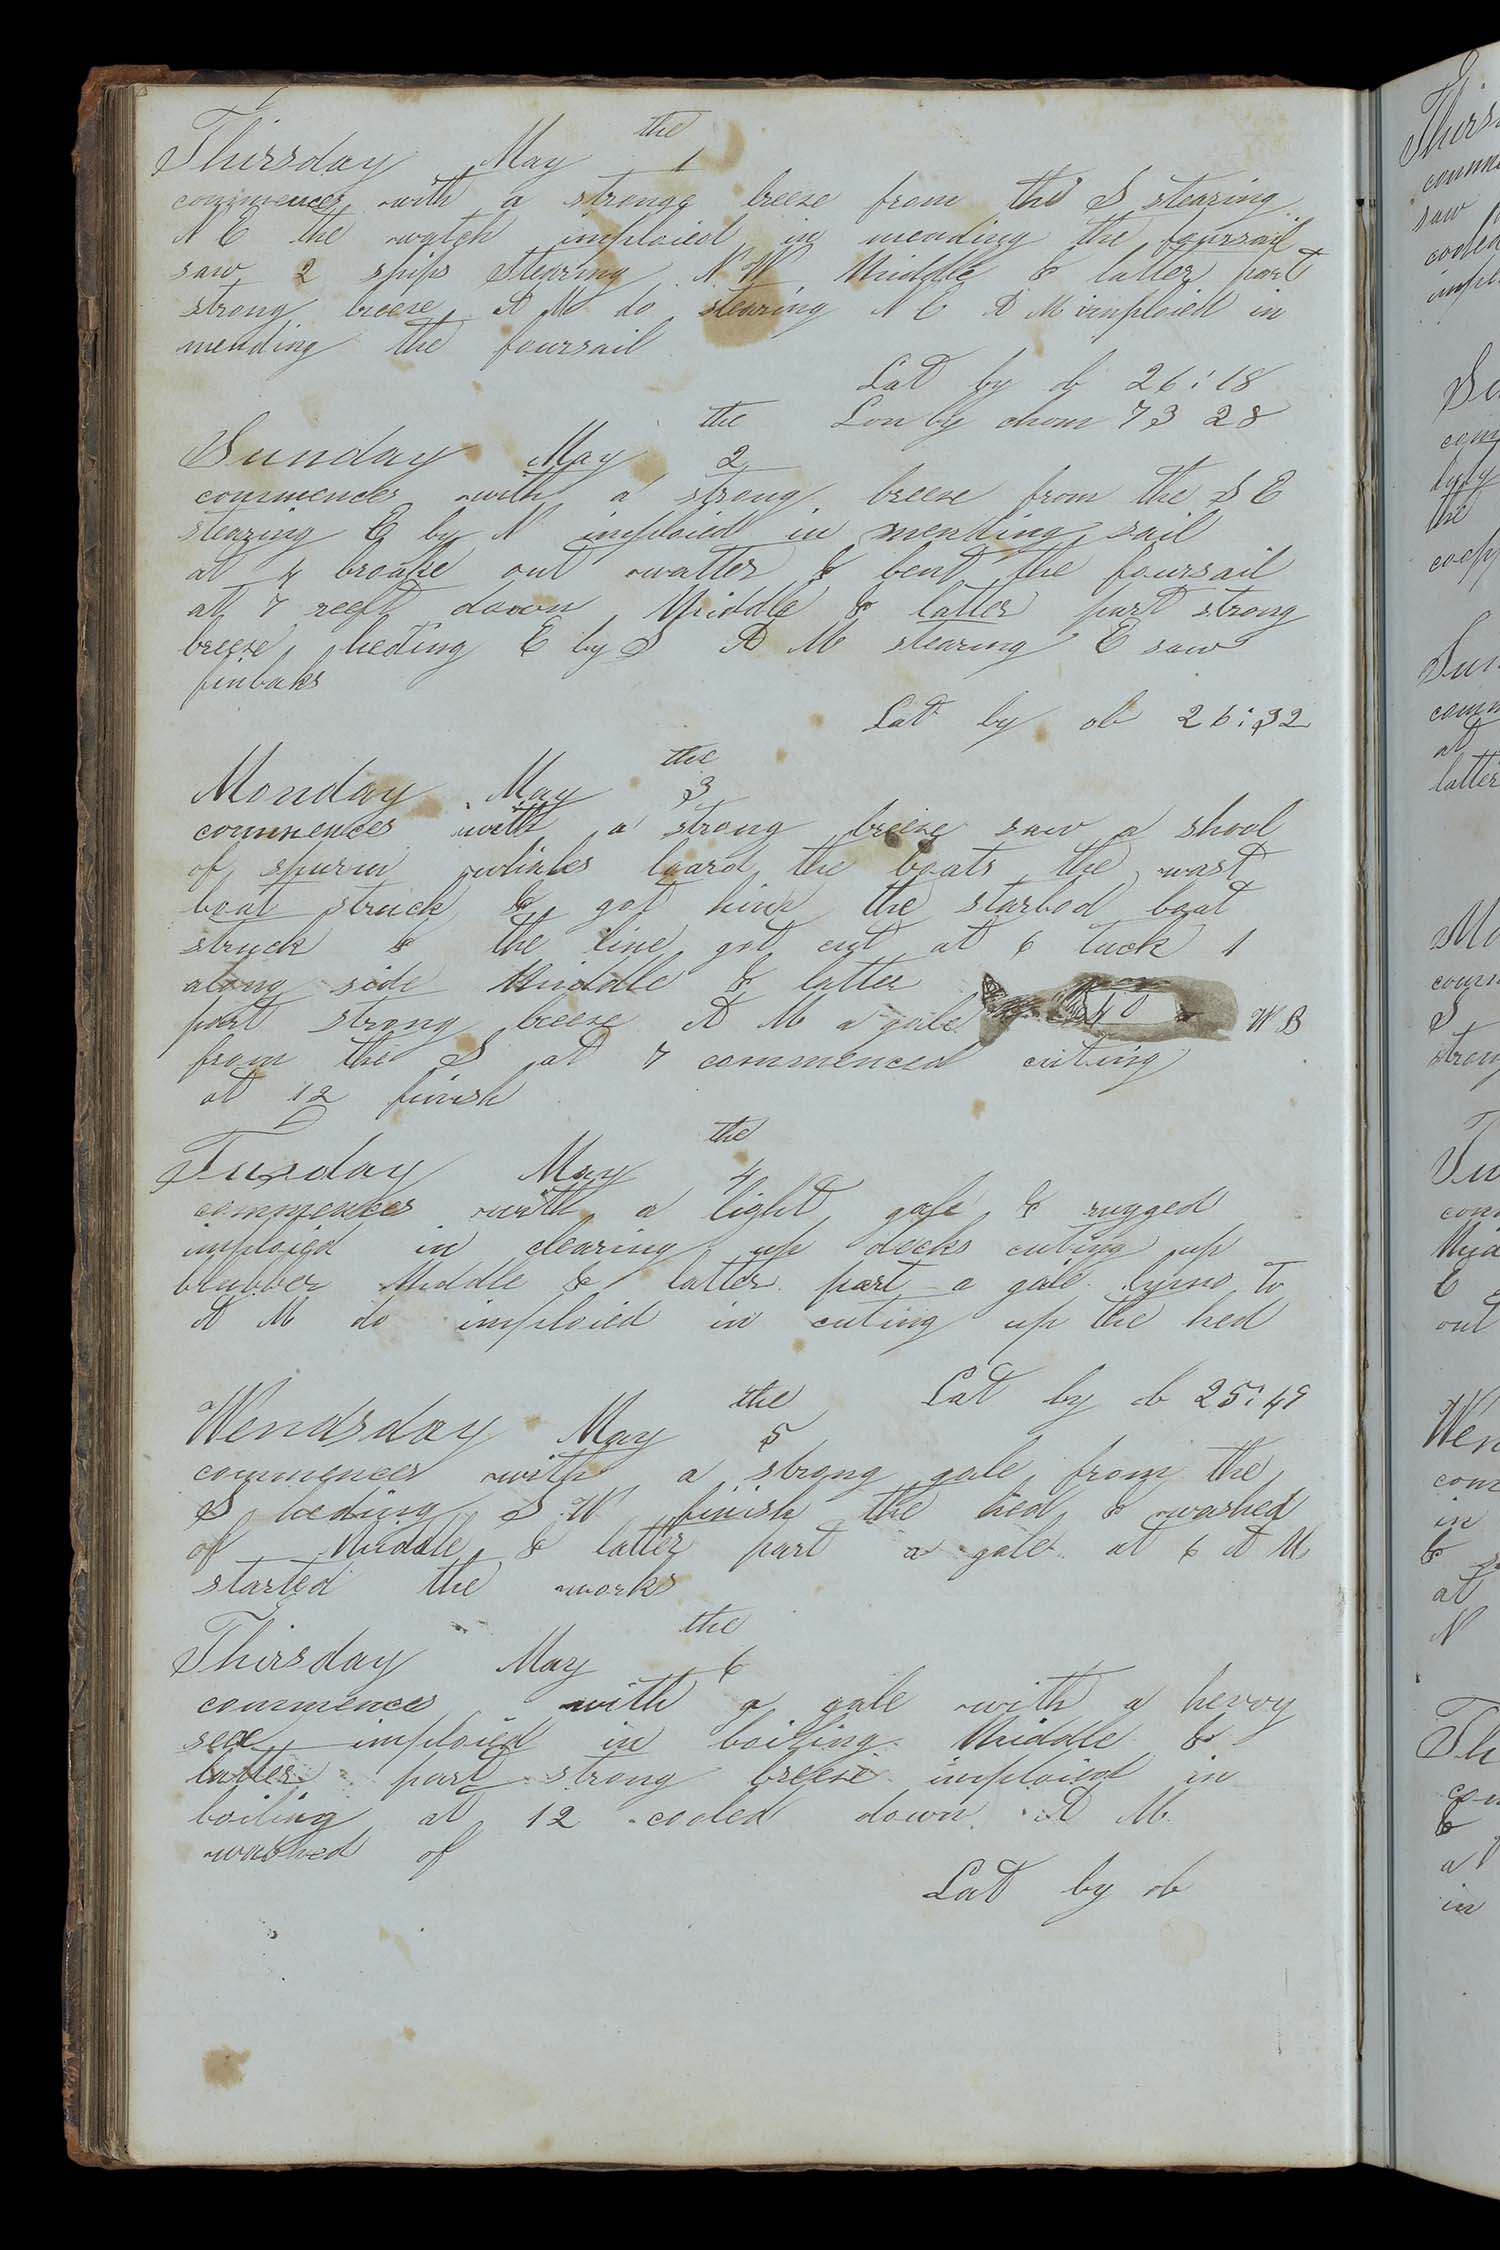 Thirsday May the 1
commences with a strongg breeze from the S stearing
N E the watch imploied in mending the foursail
saw 2 ships stearing N W Middle & latter part
strong breeze A M do stearing N E A M imploied in
mending the foursail
Lat by ob 26:18
Lon by chom 73 28
Sunday May the 2
commences with a strong breeze from the S E
stearing E by N imploied in mending sail
at 4 broake out watter & bent the foursail
at 7 reeft down Middle & latter part strong
breeze heding E by S A M stearing E saw
finbaks
Lat by ob 26:32
Monday May the 3
commences with a strong breeze saw a shool
of spurm whales loard the boats the wast
boat struck & got him the starbod boat
struck & the line got cut at 6 tuck 1
along side Middle & latter
part strong breeze A M a gale 40 W B
from the S at 7 commenced cuting
at 12 finish
Tusday May the 4
commences with a light gale & rugged
imploied in clearing up decks cuting up
blubber Middle & latter part a gale lying to
A M do imploied in cuting up the hed
Lat by ob 25:49
Wendsday May the 5
commences with a strong gale from the
S heding S W finish the hed & washed
of Middle & latter part a gale at 6 A M
started the works
Thirsday May the 6
commences with a gale with a hevvy
sea imploied in boiling Middle &
latter part strong breeze imploied in
boiling at 12 cooled down A M
washed of
Lat by ob